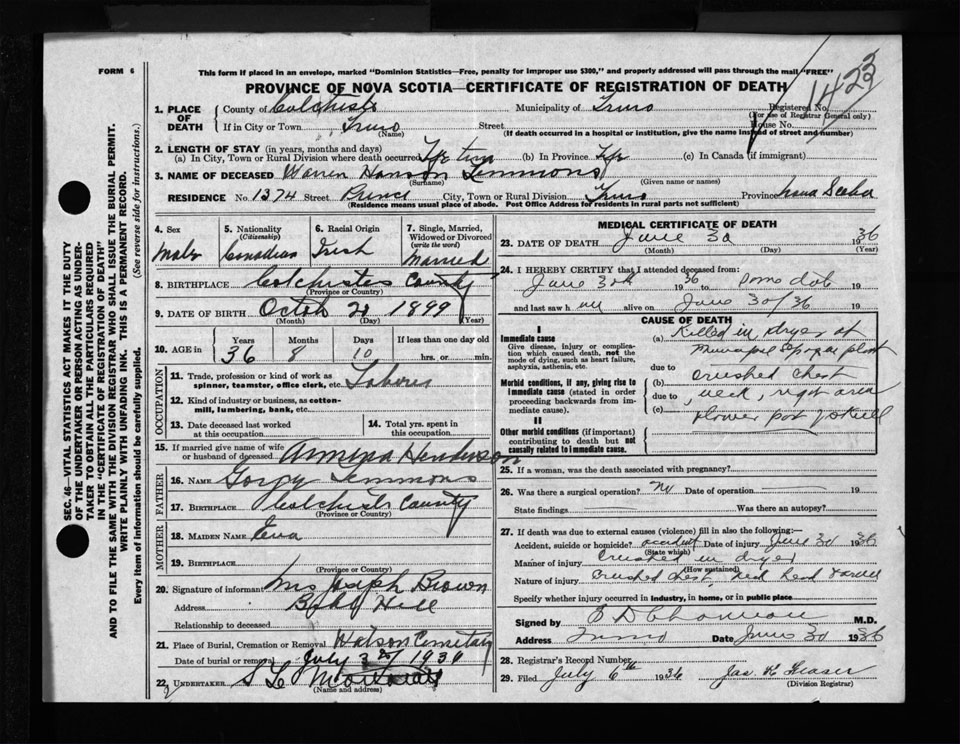 FORM 6
This form if placed in an envelope, marked "Dominion Statistics—Free, penalty for improper use $300," and properly addressed will pass through the mail "FREE"
PROVINCE OF NOVA SCOTIA—CERTIFICATE OF REGISTRATION OF DEATH
1423
1. PLACE OF DEATH County of Colchester Municipality of Truro Registered No.
(For use of Registrar General only)
If in City or Town Truro Street House No.
(Name) (If death occurred in a hospital or institution, give the name instead of street and number)
2. LENGTH OF STAY (in years, months and days)
(a) In City, Town or Rural Division where death occurred Life time (b) In Province Life (c) In Canada (if immigrant)
3. NAME OF DECEASED Warren Hanson Lemmons
(Surname) (Given name or names)
RESIDENCE No. 1374 Street Prince City, Town or Rural Division Truro Province Nova Scotia
(Residence means usual place of abode. Post Office Address for residents in rural parts not sufficient)
4. Sex Male
5. Nationality (Citizenship) Canadian
6. Racial Origin Irish
7. Single, Married, Widowed or Divorced (write the word) Married
8. BIRTHPLACE Colchester County
(Province or Country)
9. DATE OF BIRTH Octob 20 1899
(Month) (Day) (Year)
10. AGE in Years 36 Months 8 Days 10 If less than one day old hrs. or min.
OCCUPATION
11. Trade, profession or kind of work as spinner, teamster, office clerk, etc. Laborer
12. Kind of industry or business, as cotton-mill, lumbering, bank, etc.
13. Date deceased last worked at this occupation
14. Total yrs. spent in this occupation
15. If married give name of wife or husband of deceased Henderson
FATHER
16. NAME Lemmons
17. BIRTHPLACE Colchester County
(Province or Country)
MOTHER
18. MAIDEN NAME Lena
19. BIRTHPLACE
(Province or Country)
20. Signature of informant Mrs Joseph Brown
Address Bible Hill
Relationship to deceased
21. Place of Burial, Cremation or Removal Watson Cemetary
Date of burial or removal July 2 1936
22. UNDERTAKER
(Name and address)
MEDICAL CERTIFICATE OF DEATH
23. DATE OF DEATH June 30 1936
(Month) (Day) (Year)
24. I HEREBY CERTIFY that I attended deceased from:
June 30th 1936 to same date 19
and last saw h alive on June 30/36 19
CAUSE OF DEATH
I
Immediate cause
Give disease, injury or complication which caused death, not the mode of dying, such as heart failure, asphyxia, asthenia, etc.
Morbid conditions, if any, giving rise to immediate cause (stated in order proceeding backwards from immediate cause).
II
Other morbid conditions (if important) contributing to death but not causally related to immediate cause.
(a) Killed in dryer at
plant
due to
(b) crushed chest
due to neck, right
(c) lower part of skull
25. If a woman, was the death associated with pregnancy?
26. Was there a surgical operation? No Date of operation 19
State findings Was there an autopsy?
27. If death was due to external causes (violence) fill in also the following:—
Accident, suicide or homicide? accident Date of injury June 30 1936
(State which)
Manner of injury Crushed in dryer
(How sustained)
Nature of injury Crushed chest, neck head
Specify whether injury occurred in industry, in home, or in public place
Signed by M.D.
Address Truro Date June 30 1936
28. Registrar's Record Number
29. Filed July 6th 1936 Jas. K Fraser
(Division Registrar)
SEC. 46—VITAL STATISTICS ACT MAKES IT THE DUTY OF THE UNDERTAKER OR PERSON ACTING AS UNDERTAKER TO OBTAIN ALL THE PARTICULARS REQUIRED IN THE "CERTIFICATE OF REGISTRATION OF DEATH" AND TO FILE THE SAME WITH THE DIVISION REGISTRAR WHO SHALL ISSUE THE BURIAL PERMIT.
WRITE PLAINLY WITH UNFADING INK. THIS IS A PERMANENT RECORD.
Every item of information should be carefully supplied. (See reverse side for instructions.)